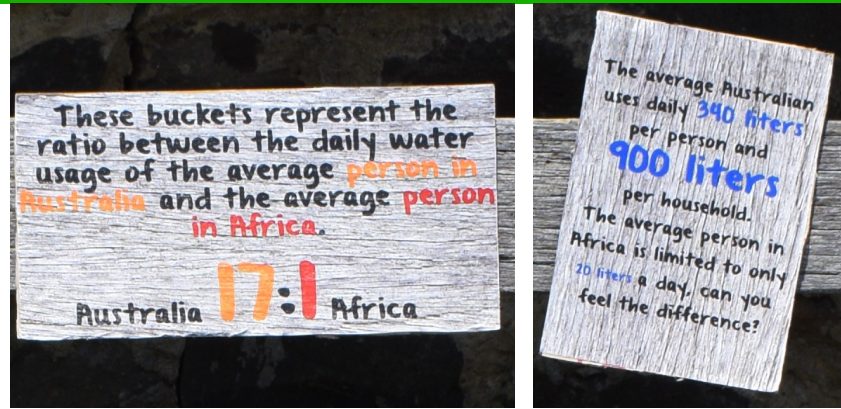 These buckets represent the
ratio between the daily water
usage of the average person in
Australia and the average person
in Africa.
Australia 17:1 Africa
The average Australian
uses daily 340 liters
per person and
900 liters
per household.
The average person in
Africa is limited to only
20 liters a day, can you
feel the difference?